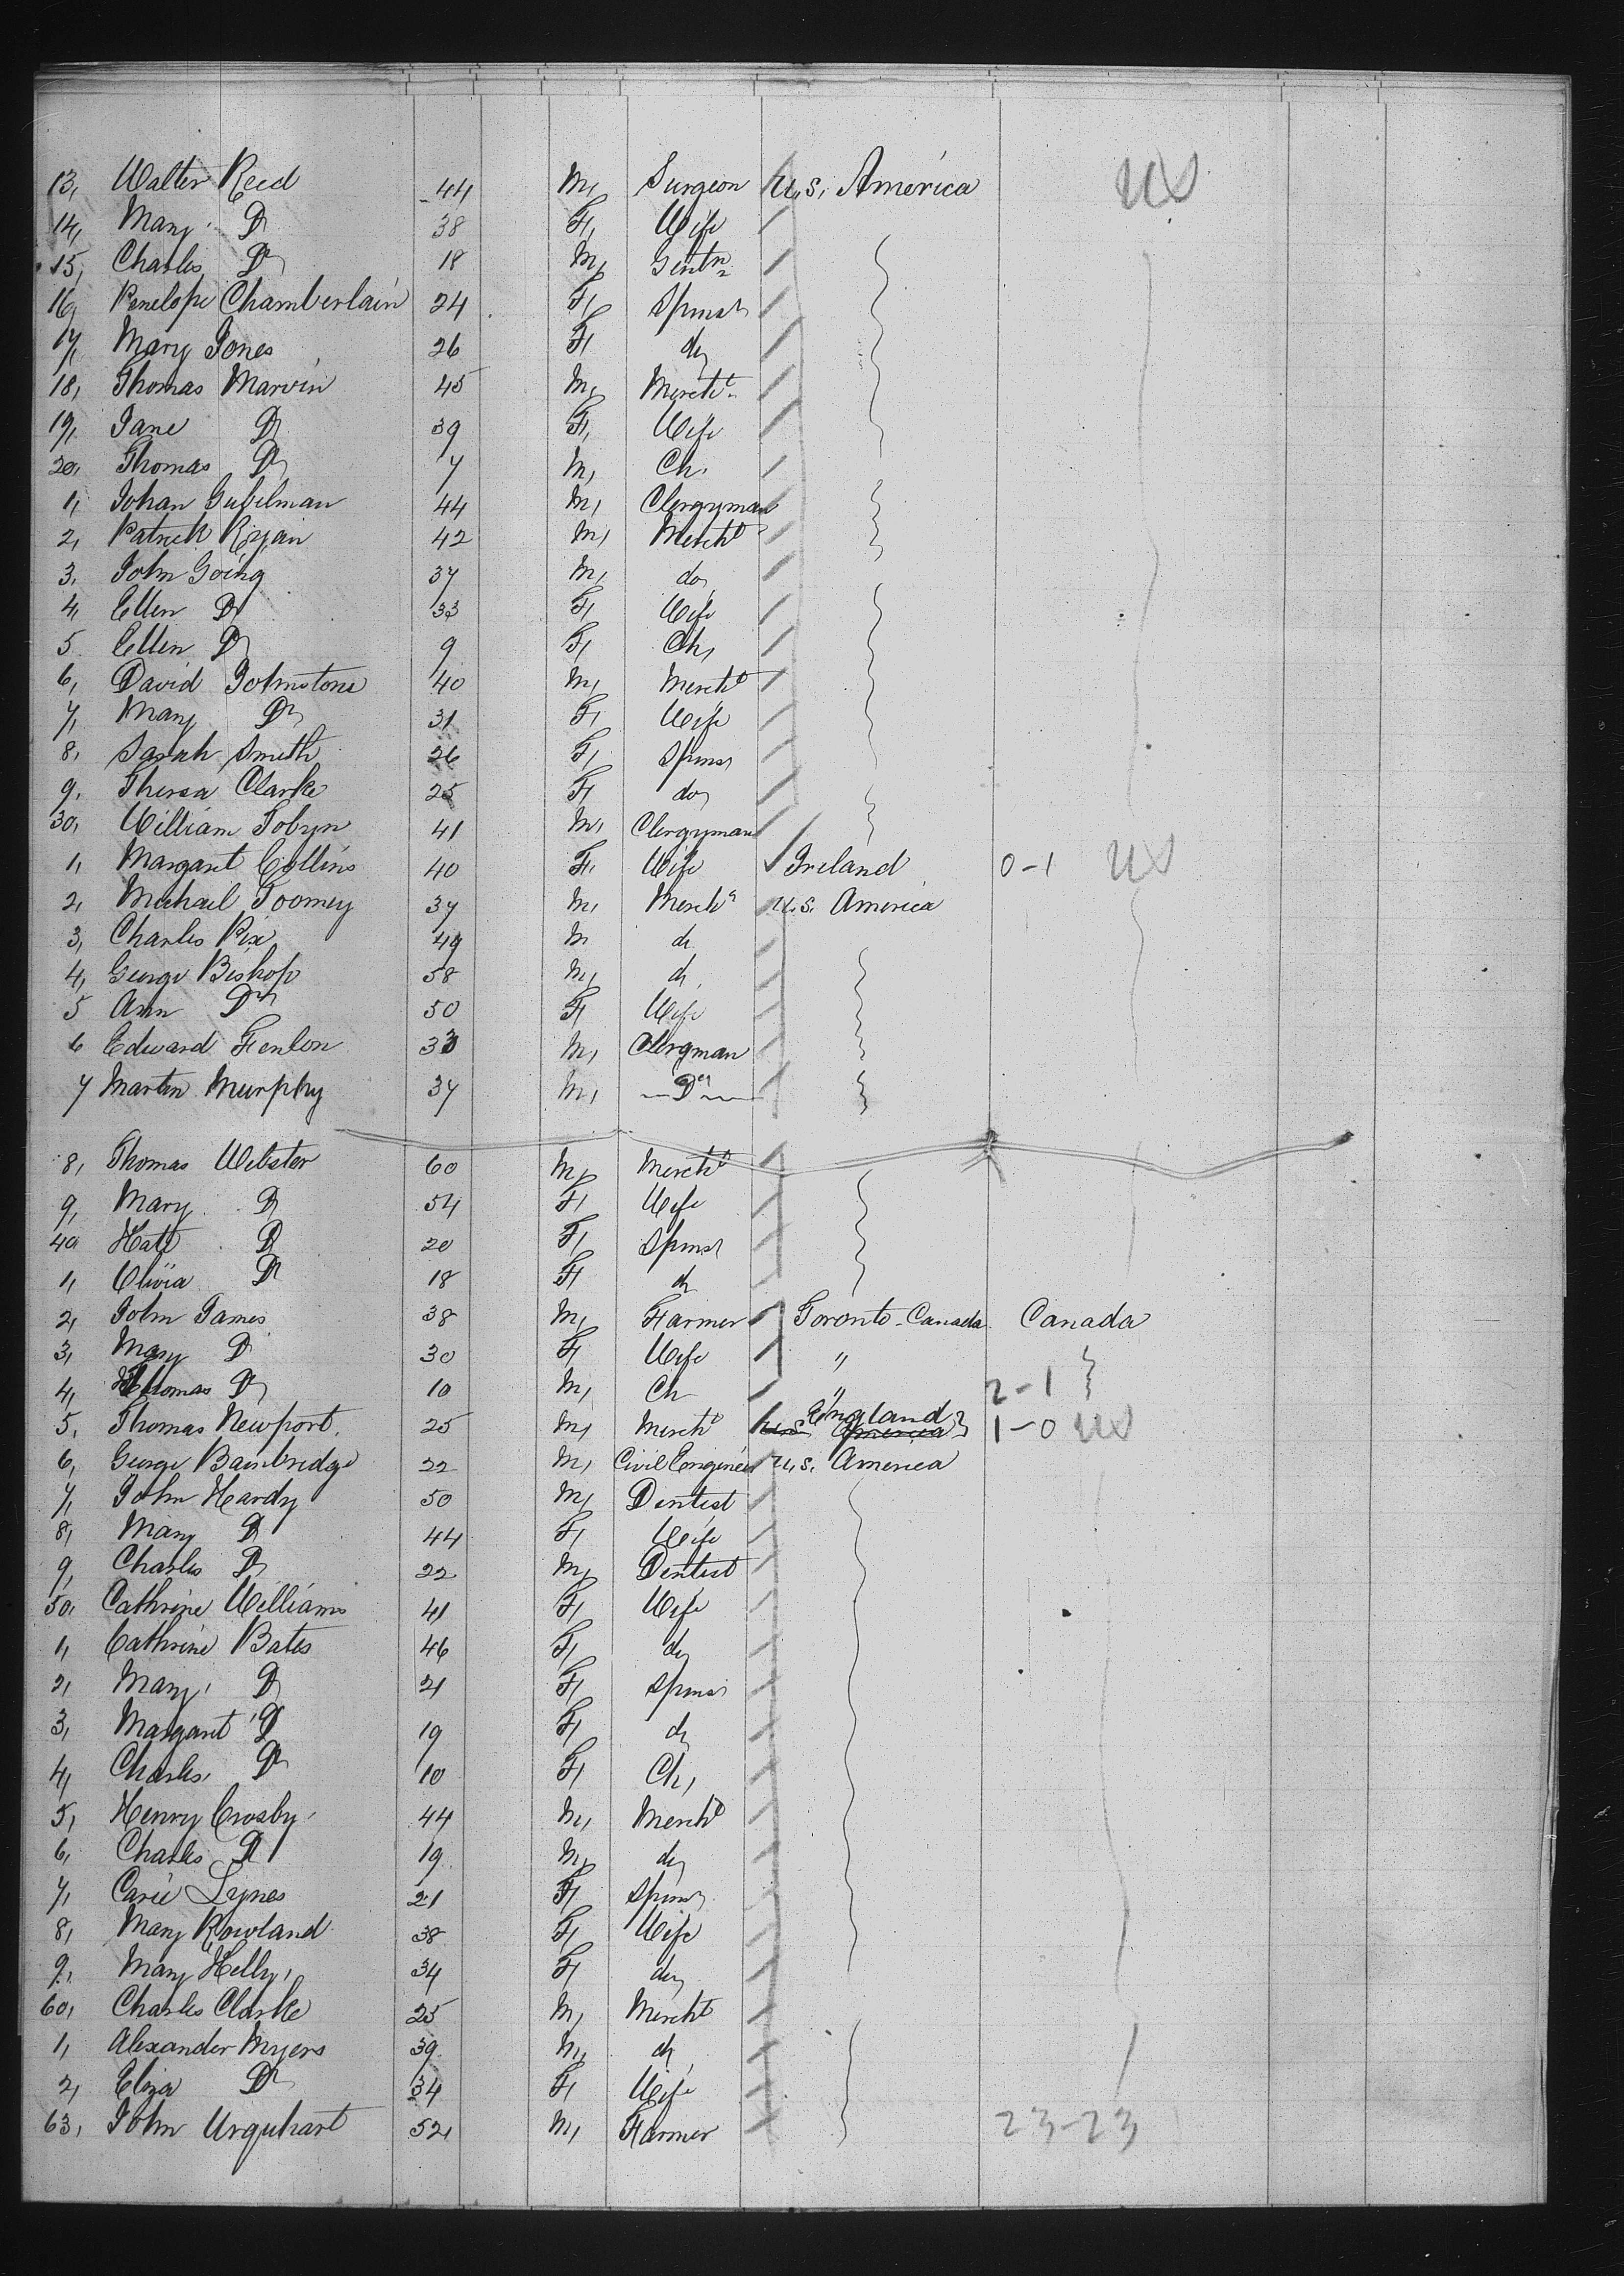 13, Walter Reed 44 M, Surgeon U.S. America US
14, Mary Do 38 F, Wife
15, Charles Do 18 M, Gentn
16, Penelope Chamberlain 24 F, Spinsr
17, Mary Jones 26 F, do
18, Thomas Marvin 45 M, Mercht
19, Jane Do 39 F, Wife
20, Thomas Do 7 M, Ch.
1, Johan Gubelman 44 M, Clergyman
2, Patrick Ryan 42 M, Mercht
3, John Going 37 M, do,
4, Ellen Do 33 F, Wife
5 Ellen Do 9 F, Ch,
6, David Johnstone 40 M, Mercht
7, Mary Do 31 F, Wife
8, Sarah Smith 26 F, Spinsr
9. Theresa Clarke 25 F, do
30, William Tobyn 41 M, Clergyman
1, Margaret Collins 40 F, Wife Ireland 0-1 US
2, Michael Toomey 37 M, Mercht U.S. America
3, Charles Pix 49 M do
4, George Bishop 58 M, do
5 Ann Do 50 F, Wife
6 Edward Fenlon 33 M, Clergman
7 Martin Murphy 37 M, Do
8, Thomas Webster 60 M, Mercht
9, Mary Do 54 F, Wife
40 Hatt Do 20 F, Spinsr
1, Olivia Do 18 F, do
2, John James 38 M, Farmer Toronto-Canada Canada
3, Mary Do 30 F, Wife "
4, Thomas Do 10 M, Ch " 2-1
5, Thomas Newport. 25 M, Mercht England U.S. America 1-0 US
6, George Bainbridge 22 M, Civil Engineer U.S. America
7, John Hardy 50 M, Dentist
8, Mary Do 44 F, Wife
9, Charles Do 22 M, Dentist
50, Cathrine Williams 41 F, Wife
1, Cathrine Bates 46 F, do
2, Mary Do 21 F, Spinsr
3, Margaret Do 19 F, do
4, Charles Do 10 F, Ch,
5, Henry Crosby 44 M, Mercht
6, Charles Do 19 M, do
7, Carie Lynes 21 F, Spinsr
8, Mary Rowland 38 F, Wife
9, Mary Kelly, 34 F, do
60, Charles Clarke 25 M, Mercht
1, Alexander Myers 39 M, do
2, Eliza Do 34 F, Wife
63, John Urquhart 52 M, Farmer 23-23